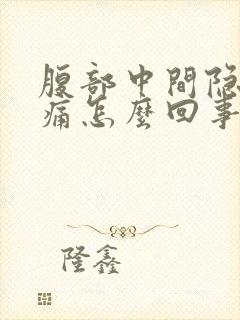 腹部中間隐
痛怎麽回事
隆鑫